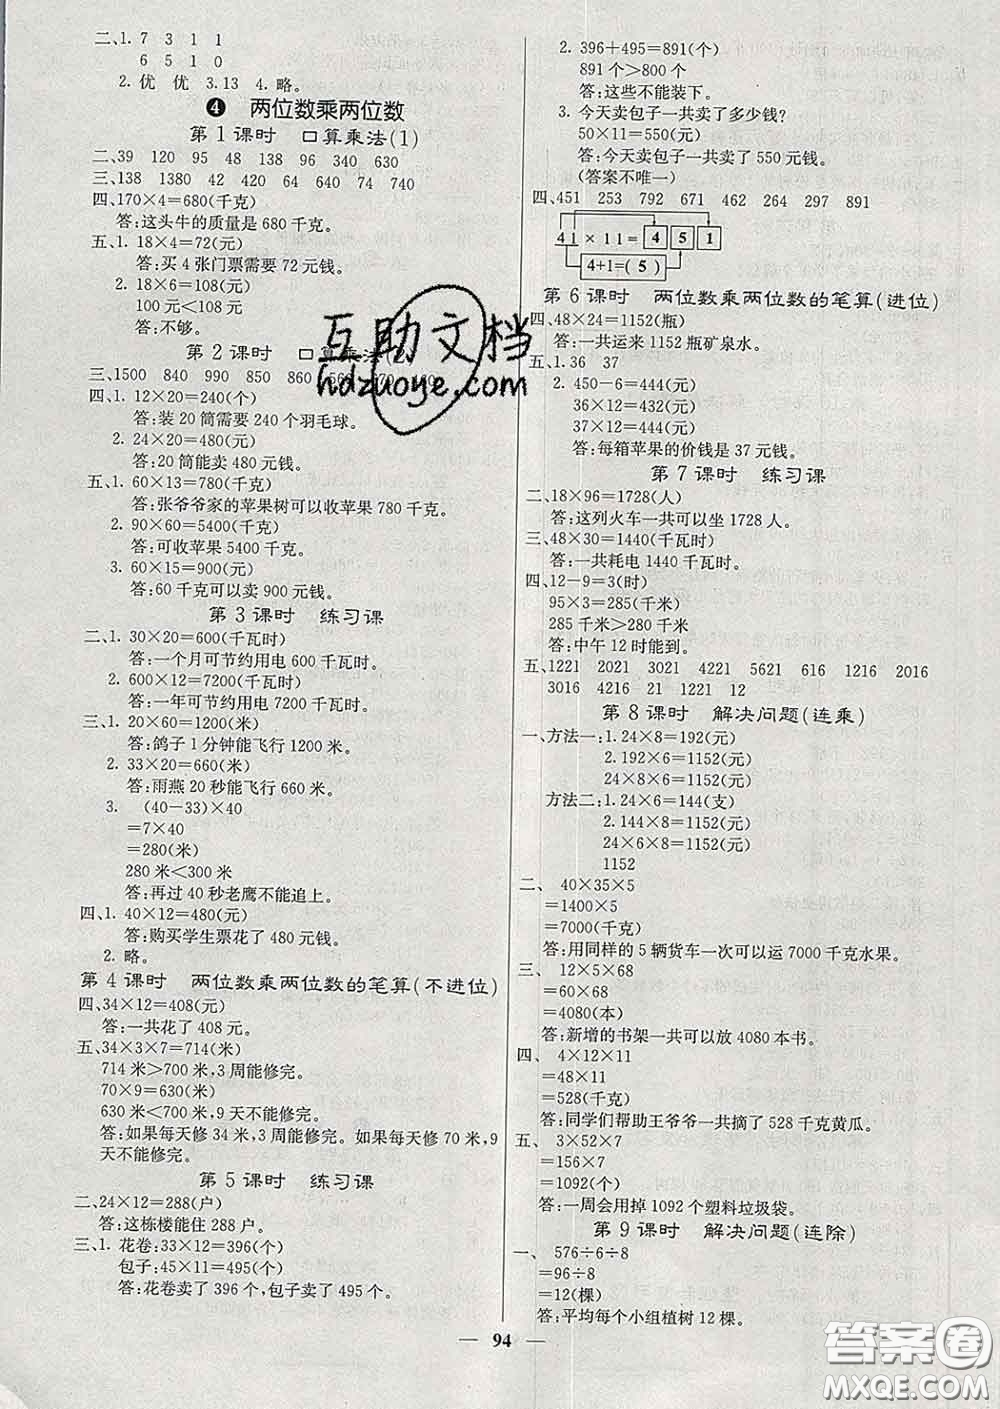 二、1. 7 3 1 1
6 5 1 0
2. 优 优 3.13 4. 略。
4 两位数乘两位数
第1课时 口算乘法(1)
二、39 120 95 48 138 96 340 630
三、138 1380 42 420 64 640 74 740
四、170×4=680(千克)
答:这头牛的质量是 680 千克。
五、1. 18×4=72(元)
答:买 4 张门票需要 72 元钱。
2. 18×6=108(元)
100 元<108 元
答:不够。
第2课时 口算乘法(2)
三、1500 840 990 850 860
四、1. 12×20=240(个)
答:装 20 筒需要 240 个羽毛球。
2. 24×20=480(元)
答:20 筒能卖 480 元钱。
五、1. 60×13=780(千克)
答:张爷爷家的苹果树可以收苹果 780 千克。
2. 90×60=5400(千克)
答:可收苹果 5400 千克。
3. 60×15=900(元)
答:60 千克可以卖 900 元钱。
第3课时 练习课
二、1. 30×20=600(千瓦时)
答:一个月可节约用电 600 千瓦时。
2. 600×12=7200(千瓦时)
答:一年可节约用电 7200 千瓦时。
三、1. 20×60=1200(米)
答:鸽子 1 分钟能飞行 1200 米。
2. 33×20=660(米)
答:雨燕 20 秒能飞行 660 米。
3. (40-33)×40
=7×40
=280(米)
280 米<300 米
答:再过 40 秒老鹰不能追上。
四、1. 40×12=480(元)
答:购买学生票花了 480 元钱。
2. 略。
第4课时 两位数乘两位数的笔算(不进位)
四、34×12=408(元)
答:一共花了 408 元。
五、34×3×7=714(米)
714 米>700 米,3 周能修完。
70×9=630(米)
630 米<700 米,9 天不能修完。
答:如果每天修 34 米,3 周能修完。如果每天修 70 米,9
天不能修完。
第5课时 练习课
二、24×12=288(户)
答:这栋楼能住 288 户。
三、1. 花卷:33×12=396(个)
包子:45×11=495(个)
答:花卷卖了 396 个,包子卖了 495 个。
2. 396+495=891(个)
891 个>800 个
答:这些不能装下。
3. 今天卖包子一共卖了多少钱?
50×11=550(元)
答:今天卖包子一共卖了 550 元钱。
(答案不唯一)
四、451 253 792 671 462 264 297 891
41×11=4 5 1
4+1=(5)
第6课时 两位数乘两位数的笔算(进位)
四、48×24=1152(瓶)
答:一共运来 1152 瓶矿泉水。
五、1. 36 37
2. 450-6=444(元)
36×12=432(元)
37×12=444(元)
答:每箱苹果的价钱是 37 元钱。
第7课时 练习课
二、18×96=1728(人)
答:这列火车一共可以坐 1728 人。
三、48×30=1440(千瓦时)
答:一共耗电 1440 千瓦时。
四、12-9=3(时)
95×3=285(千米)
285 千米>280 千米
答:中午 12 时能到。
五、1221 2021 3021 4221 5621 616 1216 2016
3016 4216 21 1221 12
第8课时 解决问题(连乘)
一、方法一:1. 24×8=192(元)
2. 192×6=1152(元)
24×8×6=1152(元)
方法二:1. 24×6=144(支)
2. 144×8=1152(元)
24×6×8=1152(元)
1152
二、 40×35×5
=1400×5
=7000(千克)
答:用同样的 5 辆货车一次可以运 7000 千克水果。
三、 12×5×68
=60×68
=4080(本)
答:新增的书架一共可以放 4080 本书。
四、 4×12×11
=48×11
=528(千克)
答:同学们帮助王爷爷一共摘了 528 千克黄瓜。
五、 3×52×7
=156×7
=1092(个)
答:一周会用掉 1092 个塑料垃圾袋。
第9课时 解决问题(连除)
一、 576÷6÷8
=96÷8
=12(棵)
答:平均每个小组植树 12 棵。
— 94 —
互助文档
hdzuoye.com
答案圈
MXQE.COM